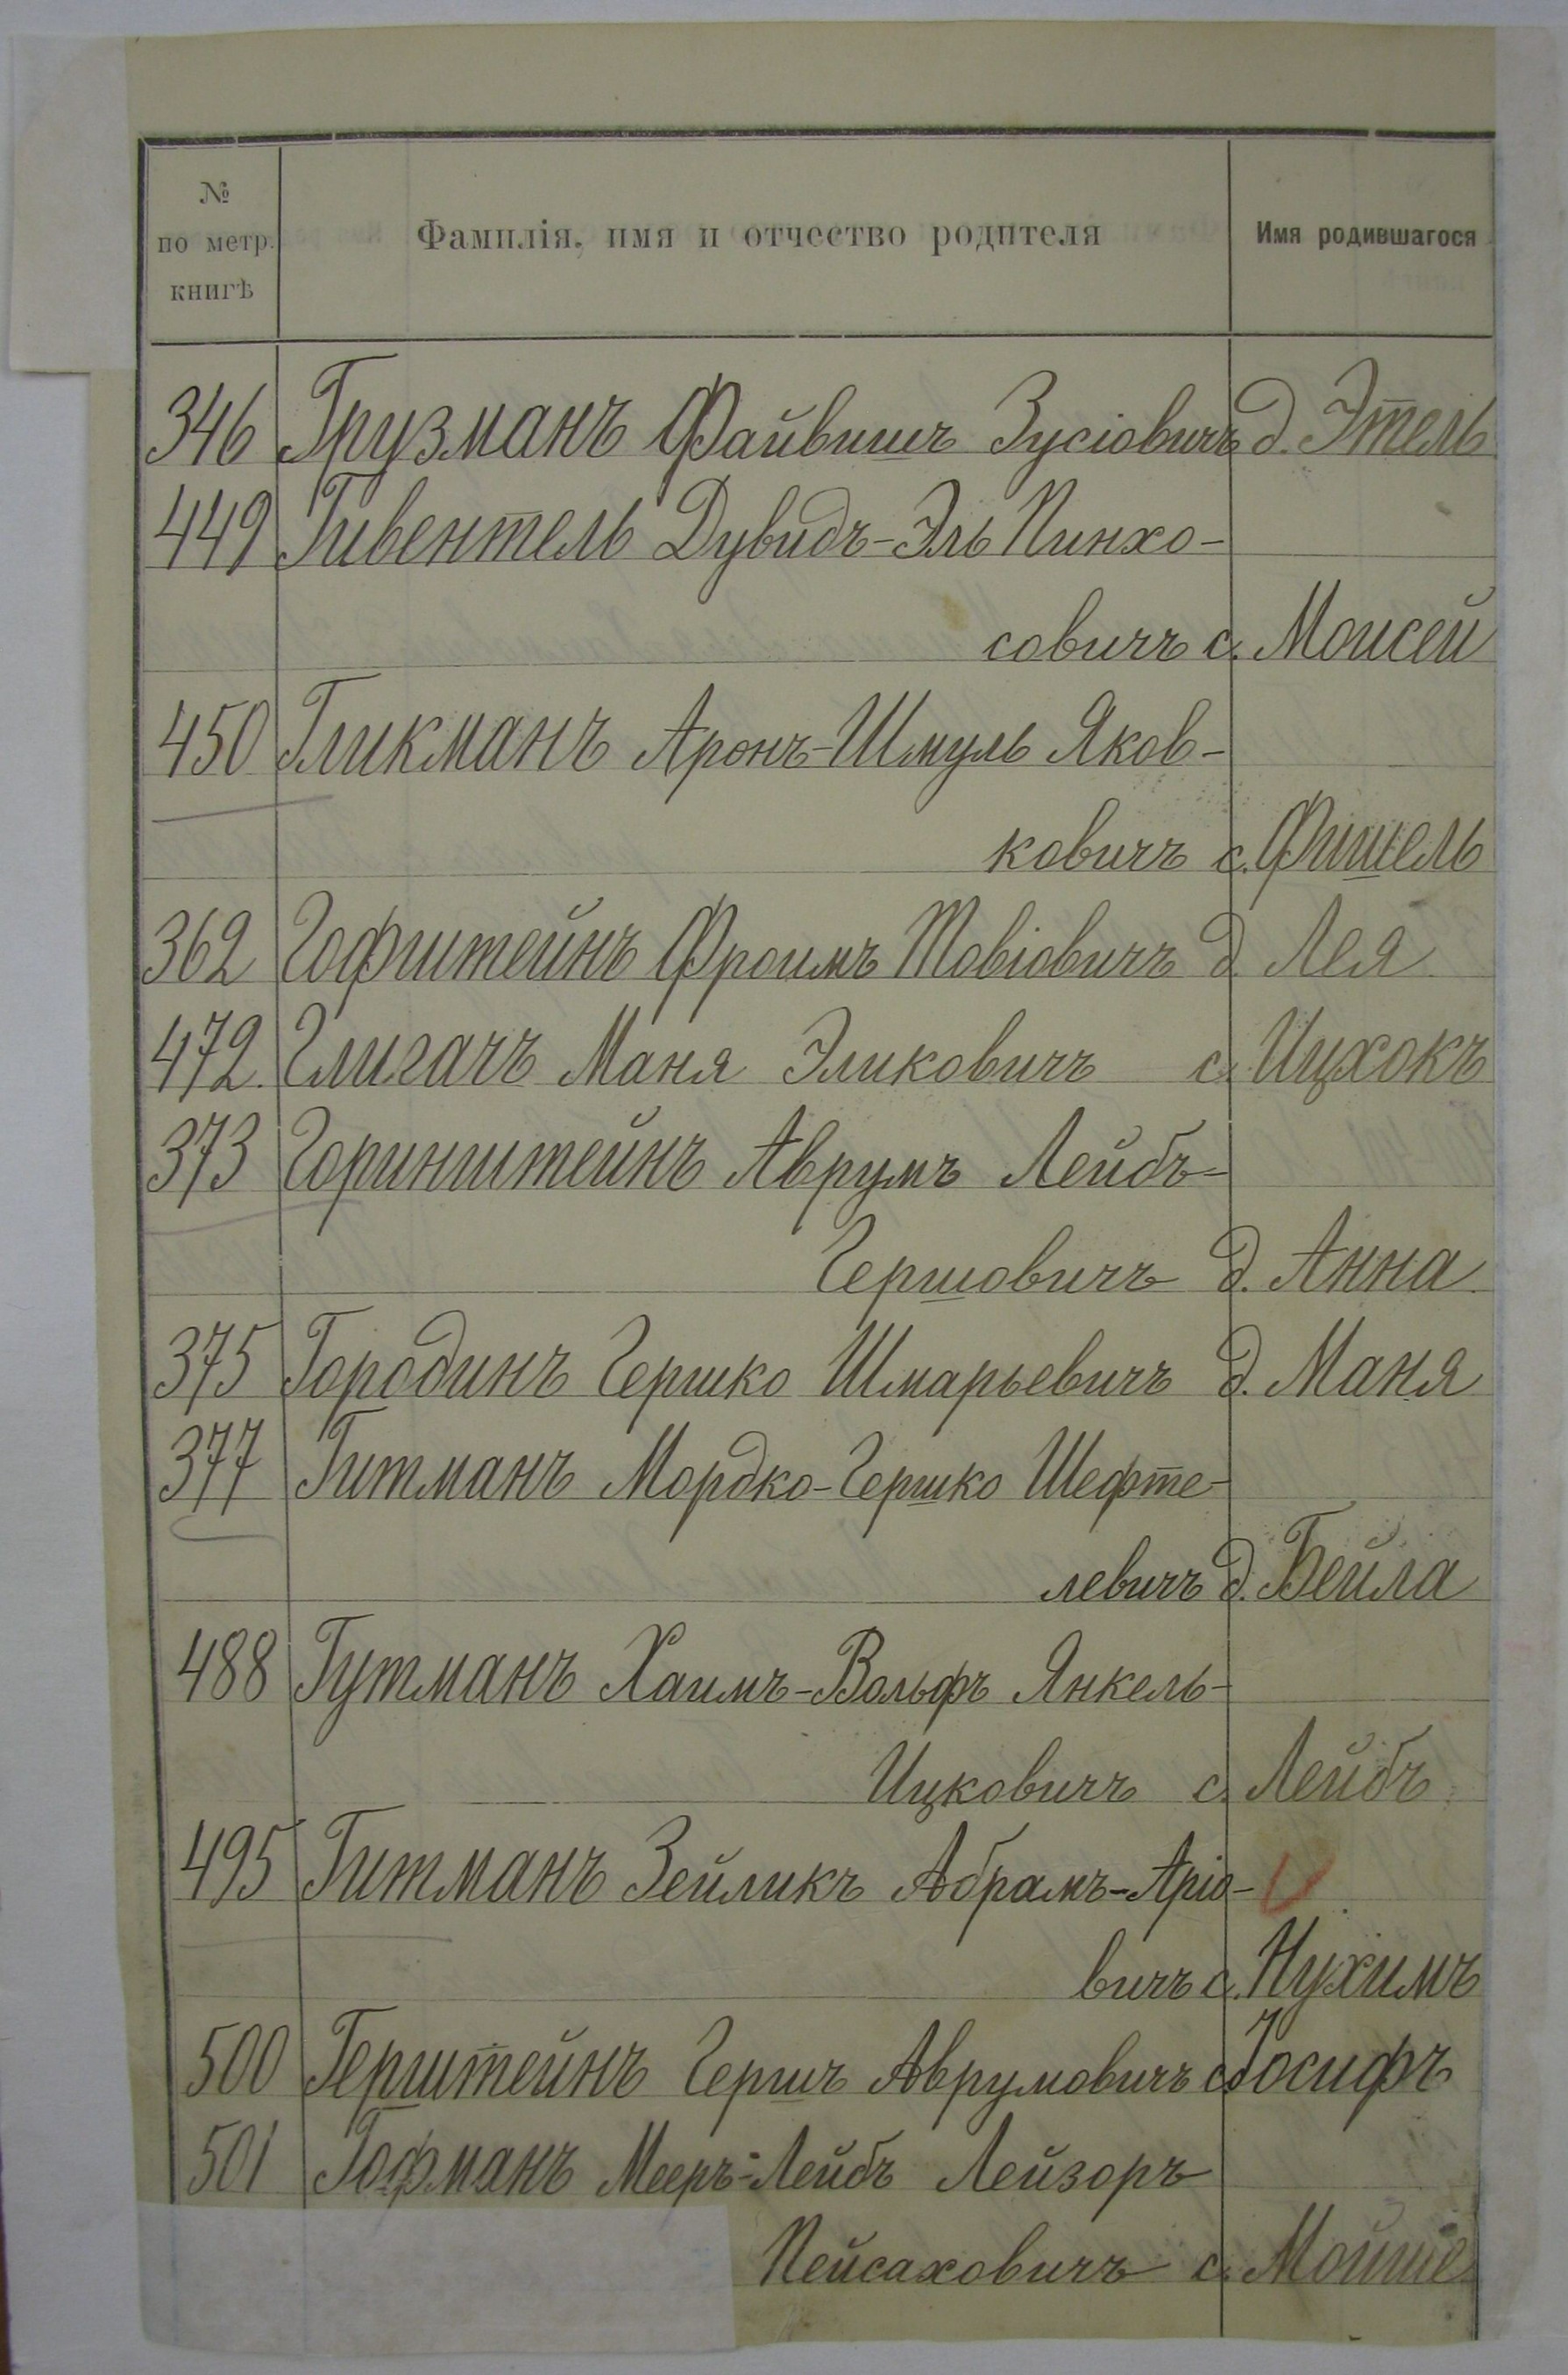 №
по метр.
книгѣ
Фамилія, имя и отчество родителя
Имя родившагося
346 Грузманъ Файвишъ Зусіовичъ д. Этель
449 Гивентель Дувидъ-Эль Пинхо-
совичъ с. Моисей
450 Гликманъ Аронъ-Шмуль Яков-
ковичъ с. Фишель
362 Гофштейнъ Фроимъ Товіовичъ д. Лея
472. Глигачъ Маня Эликовичъ с. Ицхокъ
373 Горинштейнъ Аврумъ Лейбъ-
Гершовичъ д. Анна
375 Городинъ Гершко Шмарьевичъ д. Маня
377 Гитманъ Мордко-Гершко Шефте-
левичъ д. Бейла
488 Гутманъ Хаимъ-Вольфъ Янкель-
Ицковичъ с. Лейбъ
495 Гитманъ Зейликъ Абрамъ-Аріо-
вичъ с. Нухимъ
500 Герштейнъ Гершъ Аврумовичъ с. Іосифъ
501 Гофманъ Мееръ-Лейбъ Лейзоръ
Пейсаховичъ с. Мойше